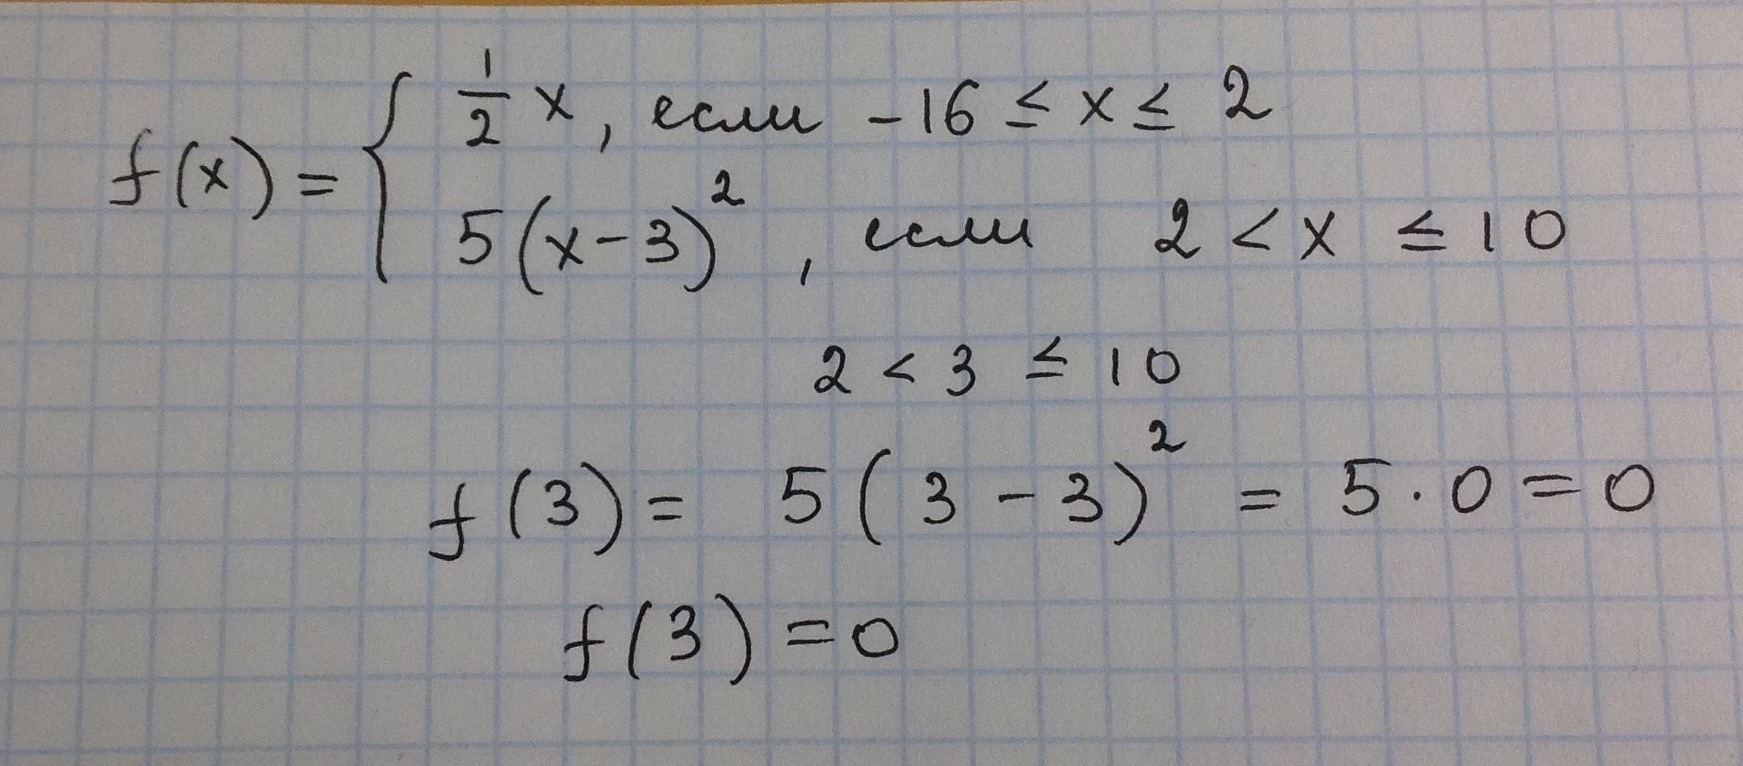 f(x) = { 1/2 x, если -16 ≤ x ≤ 2
5(x-3)², если 2 < x ≤ 10
2 < 3 ≤ 10
f(3) = 5(3-3)² = 5·0 = 0
f(3) = 0